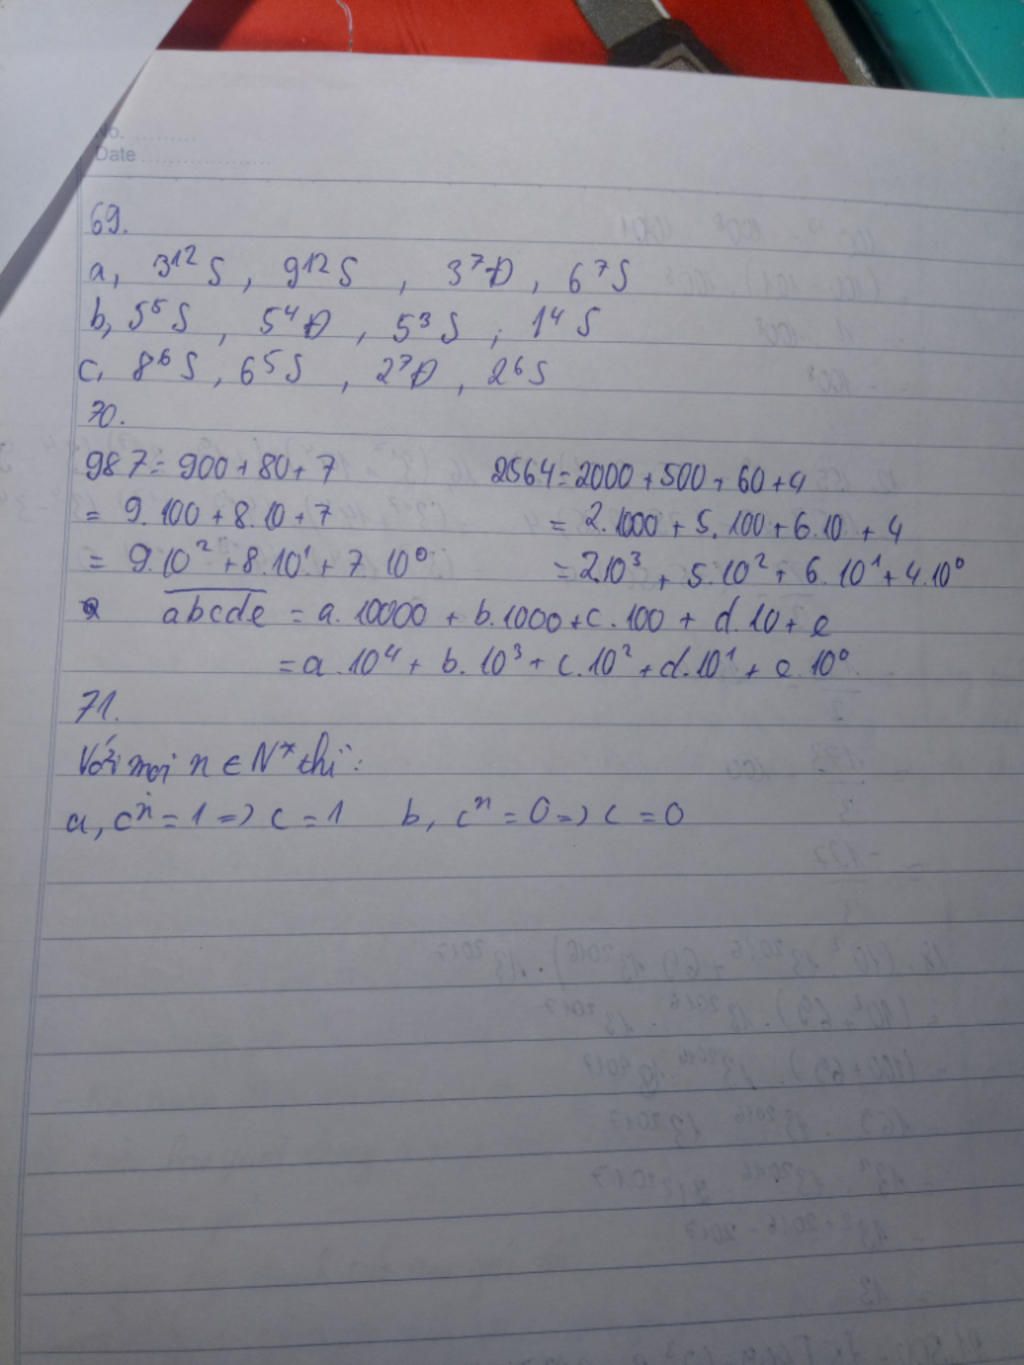 No. ..........
Date ....................
69.
a, 3¹² S , 9¹² S , 3⁷ Đ , 6⁷ S
b, 5⁵ S , 5⁴ Đ , 5³ S , 1⁴ S
c, 8⁶ S , 6⁵ S , 2⁷ Đ , 2⁶ S
70.
987 = 900 + 80 + 7 2564 = 2000 + 500 + 60 + 4
= 9.100 + 8.10 + 7 = 2.1000 + 5.100 + 6.10 + 4
= 9.10² + 8.10¹ + 7.10⁰ = 2.10³ + 5.10² + 6.10¹ + 4.10⁰
a̅b̅c̅d̅e̅ = a.10000 + b.1000 + c.100 + d.10 + e
= a.10⁴ + b.10³ + c.10² + d.10¹ + e.10⁰
71.
Với mọi n ∈ N* thì :
a, cⁿ = 1 => c = 1 b, cⁿ = 0 => c = 0